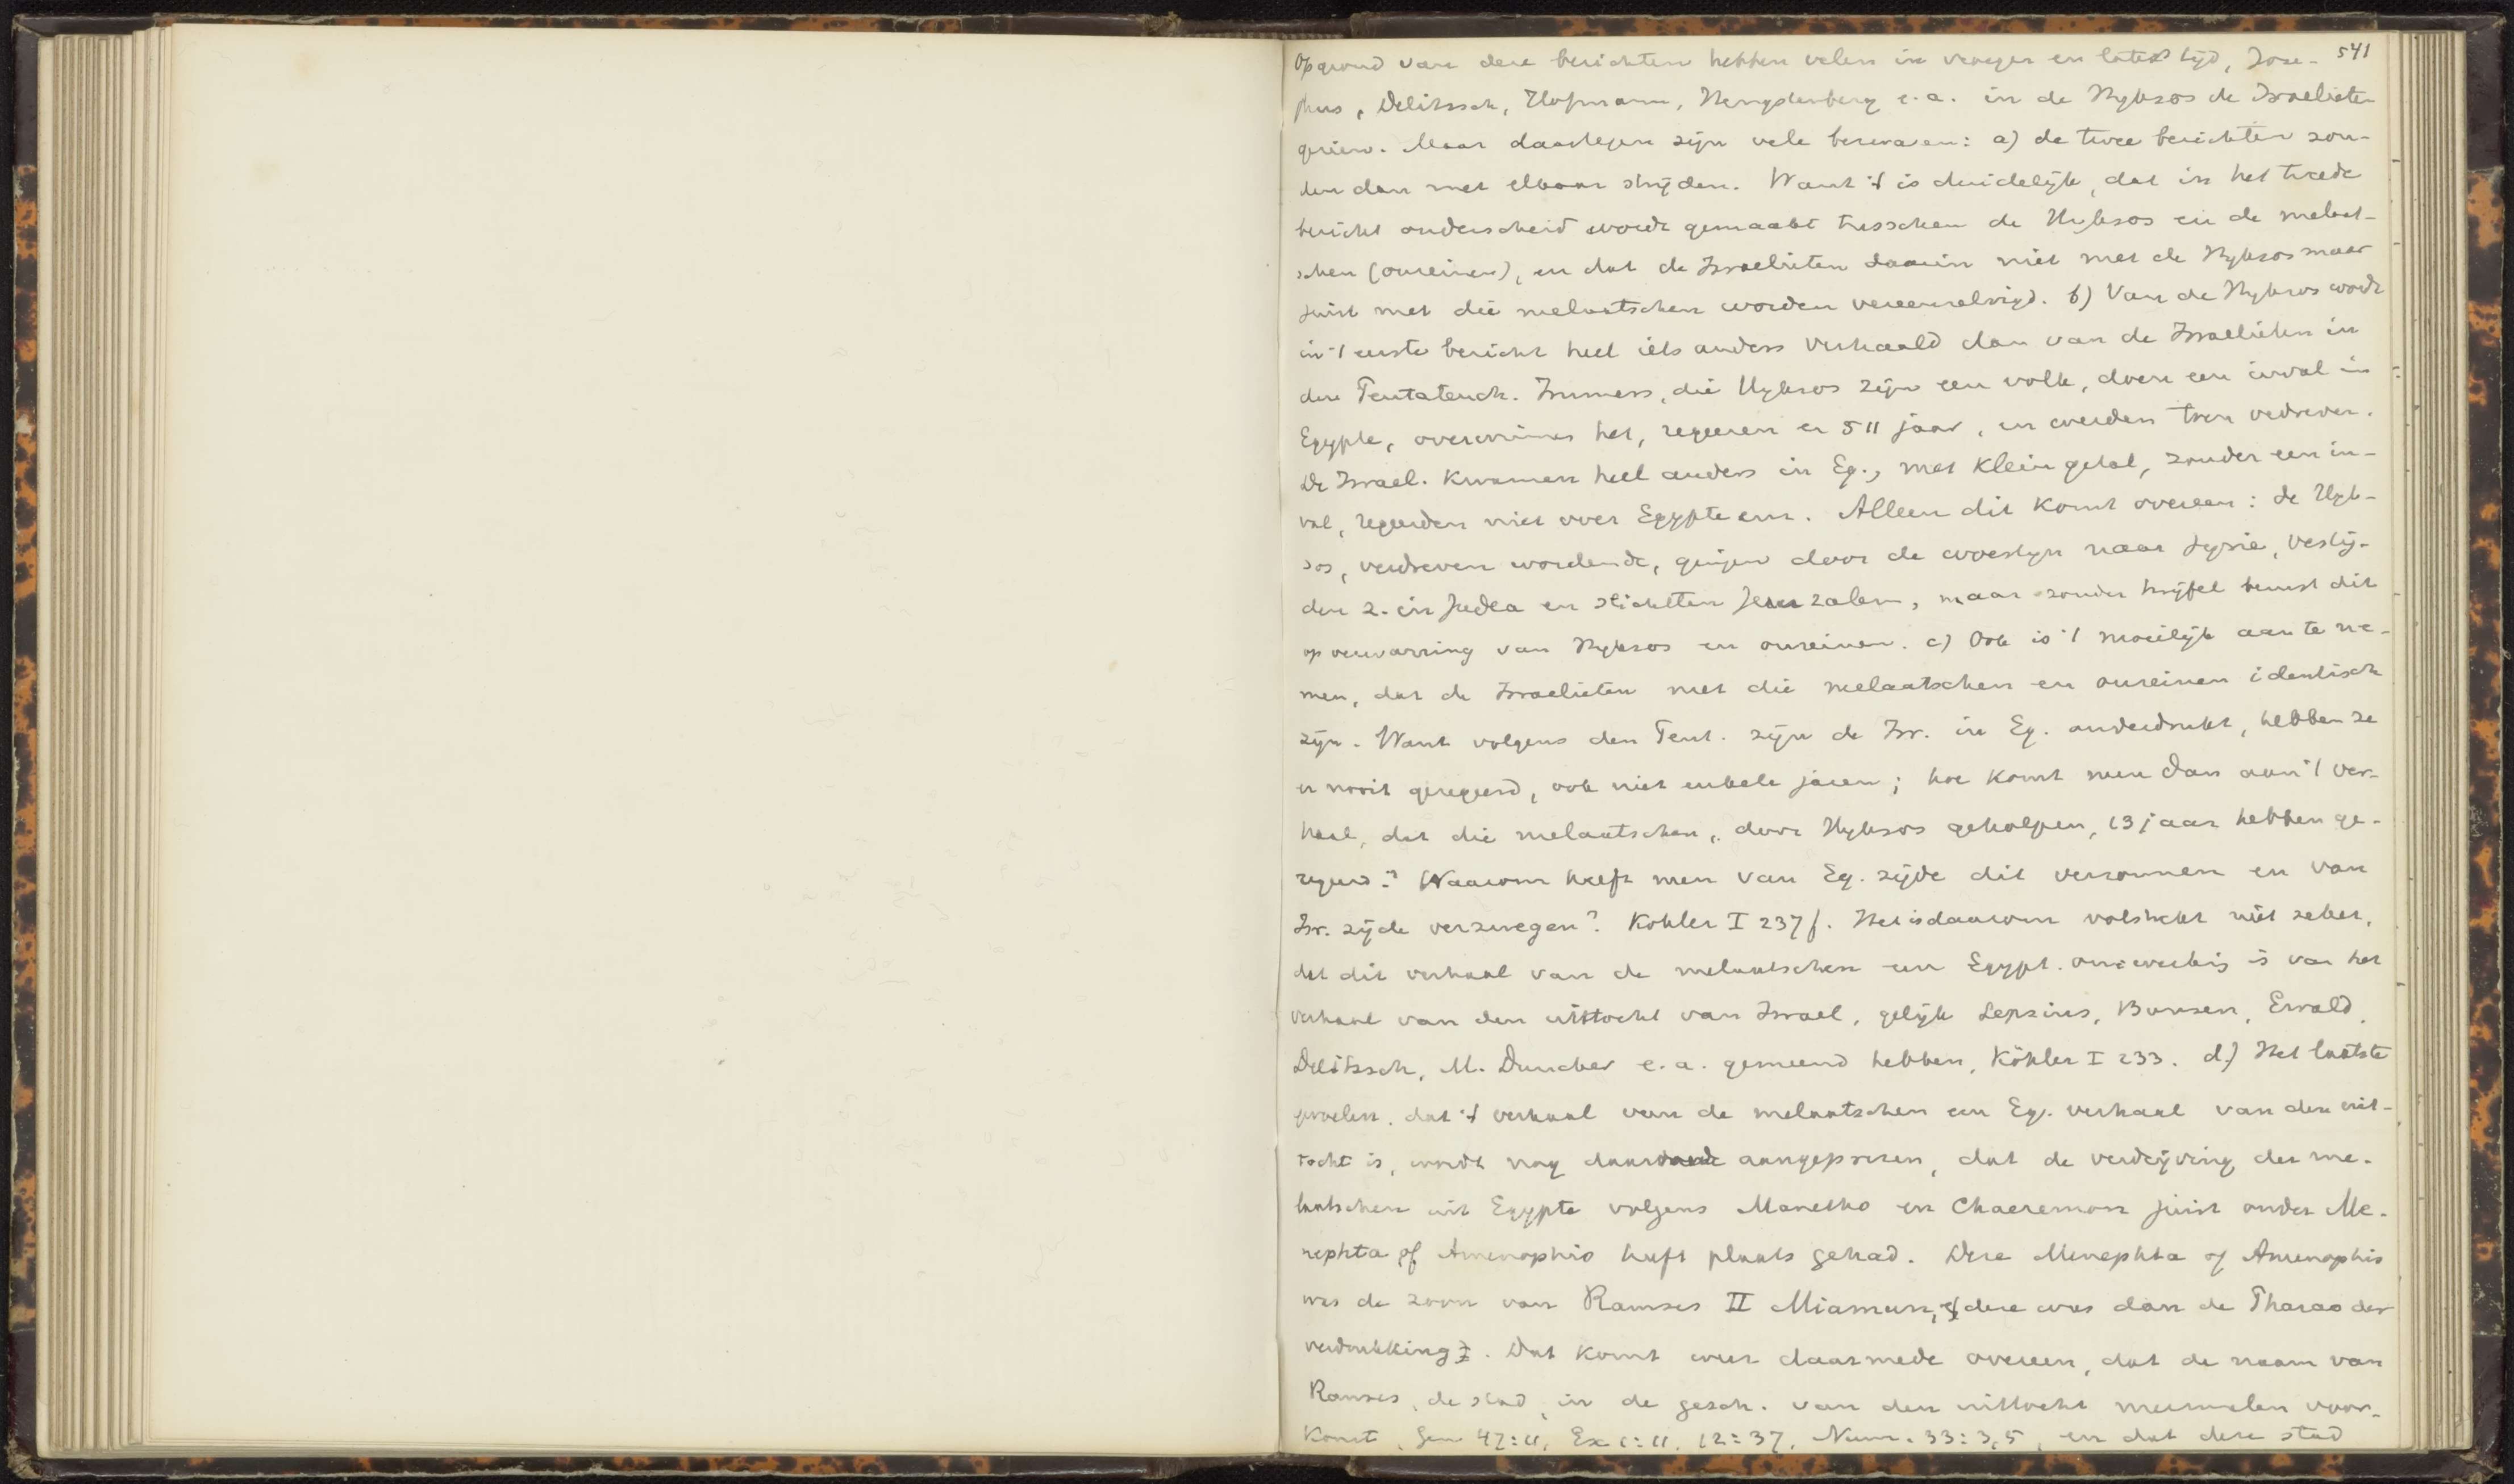 541
Op grond van deze berichten hebben velen in vroeger en later tijd, Jose-
phus, Delitzsch, Hofmann, Hengstenberg e.a. in de Hyksos de Israelieten
gezien. Maar daartegen zijn vele bezwaren: a) de twee berichten zou-
den dan met elkaar strijden. Want 't is duidelijk, dat in het tweede
bericht onderscheid wordt gemaakt tusschen de Hyksos en de melaat-
schen (onreinen), en dat de Israelieten daarin niet met de Hyksos maar
juist met die melaatschen worden vereenzelvigd. b) Van de Hyksos wordt
in 't eerste bericht heel iets anders verhaald dan van de Israelieten in
den Pentateuch. Immers, die Hyksos zijn een volk, doen een inval in
Egypte, overwinnen het, regeeren er 511 jaar, en werden toen verdreven.
De Israel. kwamen heel anders in Eg., met klein getal, zonder een in-
val, regeerden niet over Egypte enz. Alleen dit komt overeen: de Hyk-
sos, verdreven wordende, gingen door de woestijn naar Syrie, vestig-
den z. in Judea en stichtten Jeruzalem, maar zonder twijfel berust dit
op verwarring van Hyksos en onreinen. c) Ook is 't moeilijk aan te ne-
men, dat de Israelieten met die melaatschen en onreinen identisch
zijn. Want volgens den Pent. zijn de Isr. in Eg. onderdrukt, hebben ze
er nooit geregeerd, ook niet enkele jaren; hoe komt men dan aan 't ver-
haal, dat die melaatschen, door Hyksos geholpen, 13 jaar hebben ge-
regeerd? Waarom heeft men van Eg. zijde dit verzonnen en van
Isr. zijde verzwegen? Kohler I 237f. Het is daarom volstrekt niet zeker,
dat dit verhaal van de melaatschen een Egypt. omwerking is van het
verhaal van den uittocht van Israel, gelijk Lepsius, Bunsen, Ewald,
Delitzsch, M. Duncker e.a. gemeend hebben, Köhler I 233. d.) Het laatste
gevoelen, dat 't verhaal van de melaatschen een Eg. verhaal van den uit-
tocht is, wordt nog aangeprezen, dat de verdrijving der me-
laatschen uit Egypte volgens Manetho en Chaeremon juist onder Me-
nephta of Amenophis heeft plaats gehad. Deze Menephta of Amenophis
was de zoon van Ramses II Miamun, deze was dan de Pharao der
verdrukking. Dat komt weer daarmede overeen, dat de naam van
Ramses, de stad, in de gesch. van den uittocht meermalen voor-
komt, Gen 47:11, Ex 1:11, 12:37, Num. 33:3,5, en dat deze stad